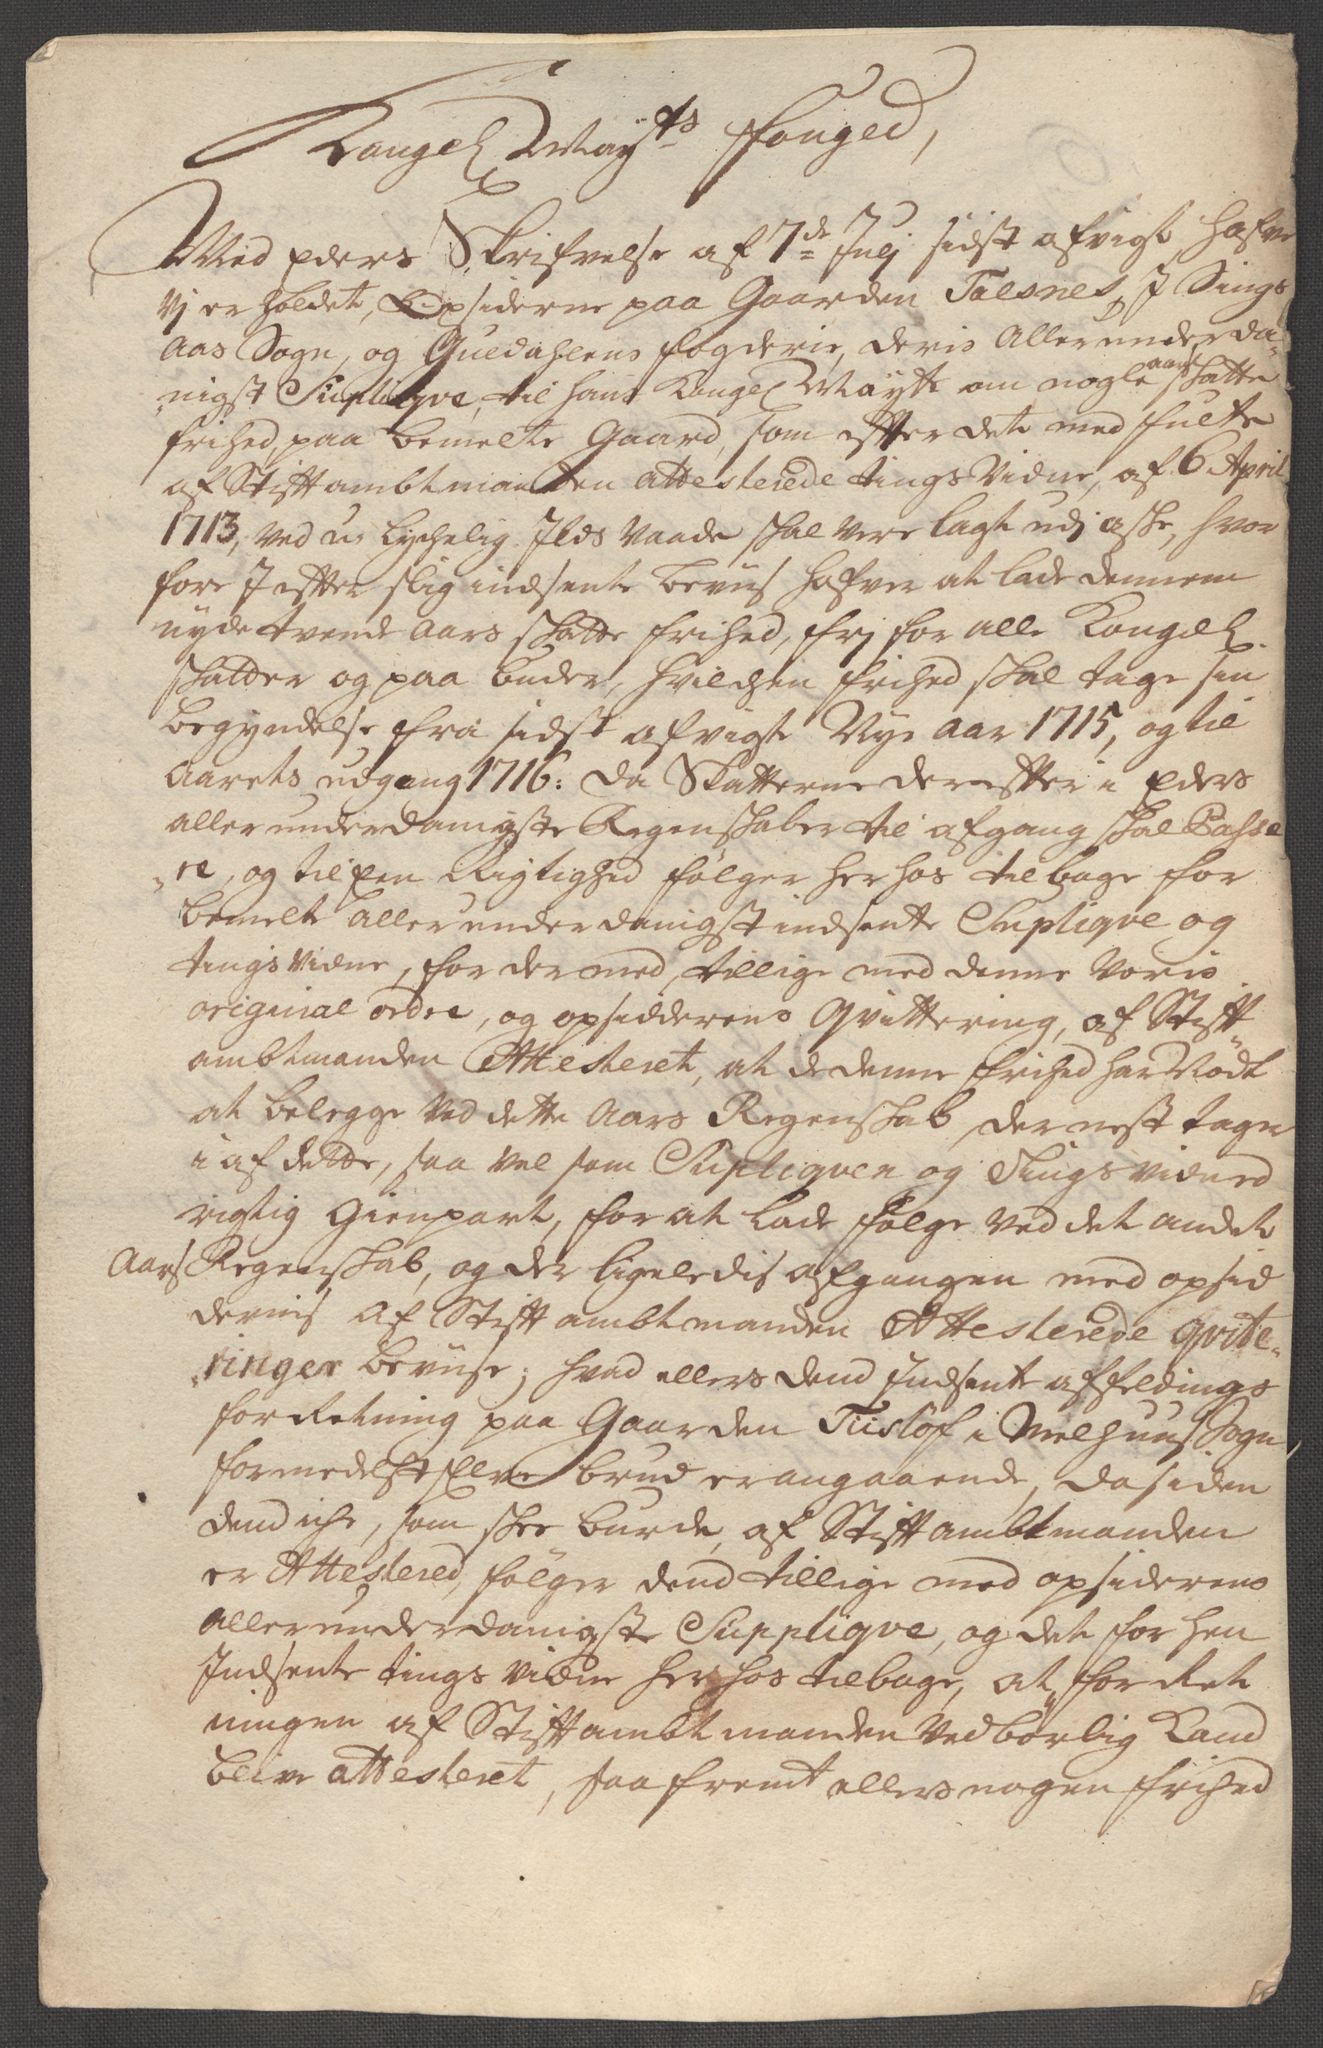 Kongel Mayts fouged,
Med Eders Skrifvelse af 7de Julj sidst afvigt hafve
Vj er holdet, Opsiderne paa Gaarden Talsnes J Sings
Aas Sogn, og Guldahlens fogderie, deris Allerunderda-
nigst Suplique, til hans Kongel Mayts om nogle aars skatte
frihed, paa bemelte Gaard, som efter dete med fulte
af Stiftambtmanden attesterede tings Vidne, af 6 April
1713, ved u-lychelig Jlds Vaade skal vere lagt udj aske, hvor
fore J efter slig indsente beviis hafver at lade dennem
nyde tvende Aars skatte frihed, frj for alle Kongel
skatter og paa buder, hvilchen frihed skal tage sin
begyndelse fra sidst afvigte Nye Aar 1715, og til
Aarets udgang 1716: da Skatterne derefter i Eders
allerunderdanigste Regenskaber til afgang skal Passe
re, og til den Rigtighed følger her hos tilbage for
bemelte allerunderdanigst indsente Suplique og
tings vidne, for dermed, tillige med denne Voris
original ordre, og opsidderens Qvittering, af Stift
ambtmanden Attesteret, at de denne frihed har Nødt
at belegge Ved dette Aars Regenskab, dernest tage
i af dette, saa vel som Supliquen og Tingsvidned
rigtig Gienpart, for at lade følge Ved det andet
Aars Regenskab, og der ligeledis afgangen med opsid
dernis af Stiftambtmanden Attesterede qvite-
ringer beviise; hvad ellers dend Jndsente affeldings
forretning paa Gaarden Tiislof i Melhuus Sogn,
formedelst Elve brud er angaaende, da siden
dend iche, som skee burde, af Stiftambtmanden
er Attestered, følger dend tillige med opsiderens
allerunderdanigste Supplique, og det for hen
Jndsente tings vidne her hos tilbage, at forret
ningen af Stiftambtmanden Vedbørlig Kand
blive attesteret, saa fremt ellers nogen frihed